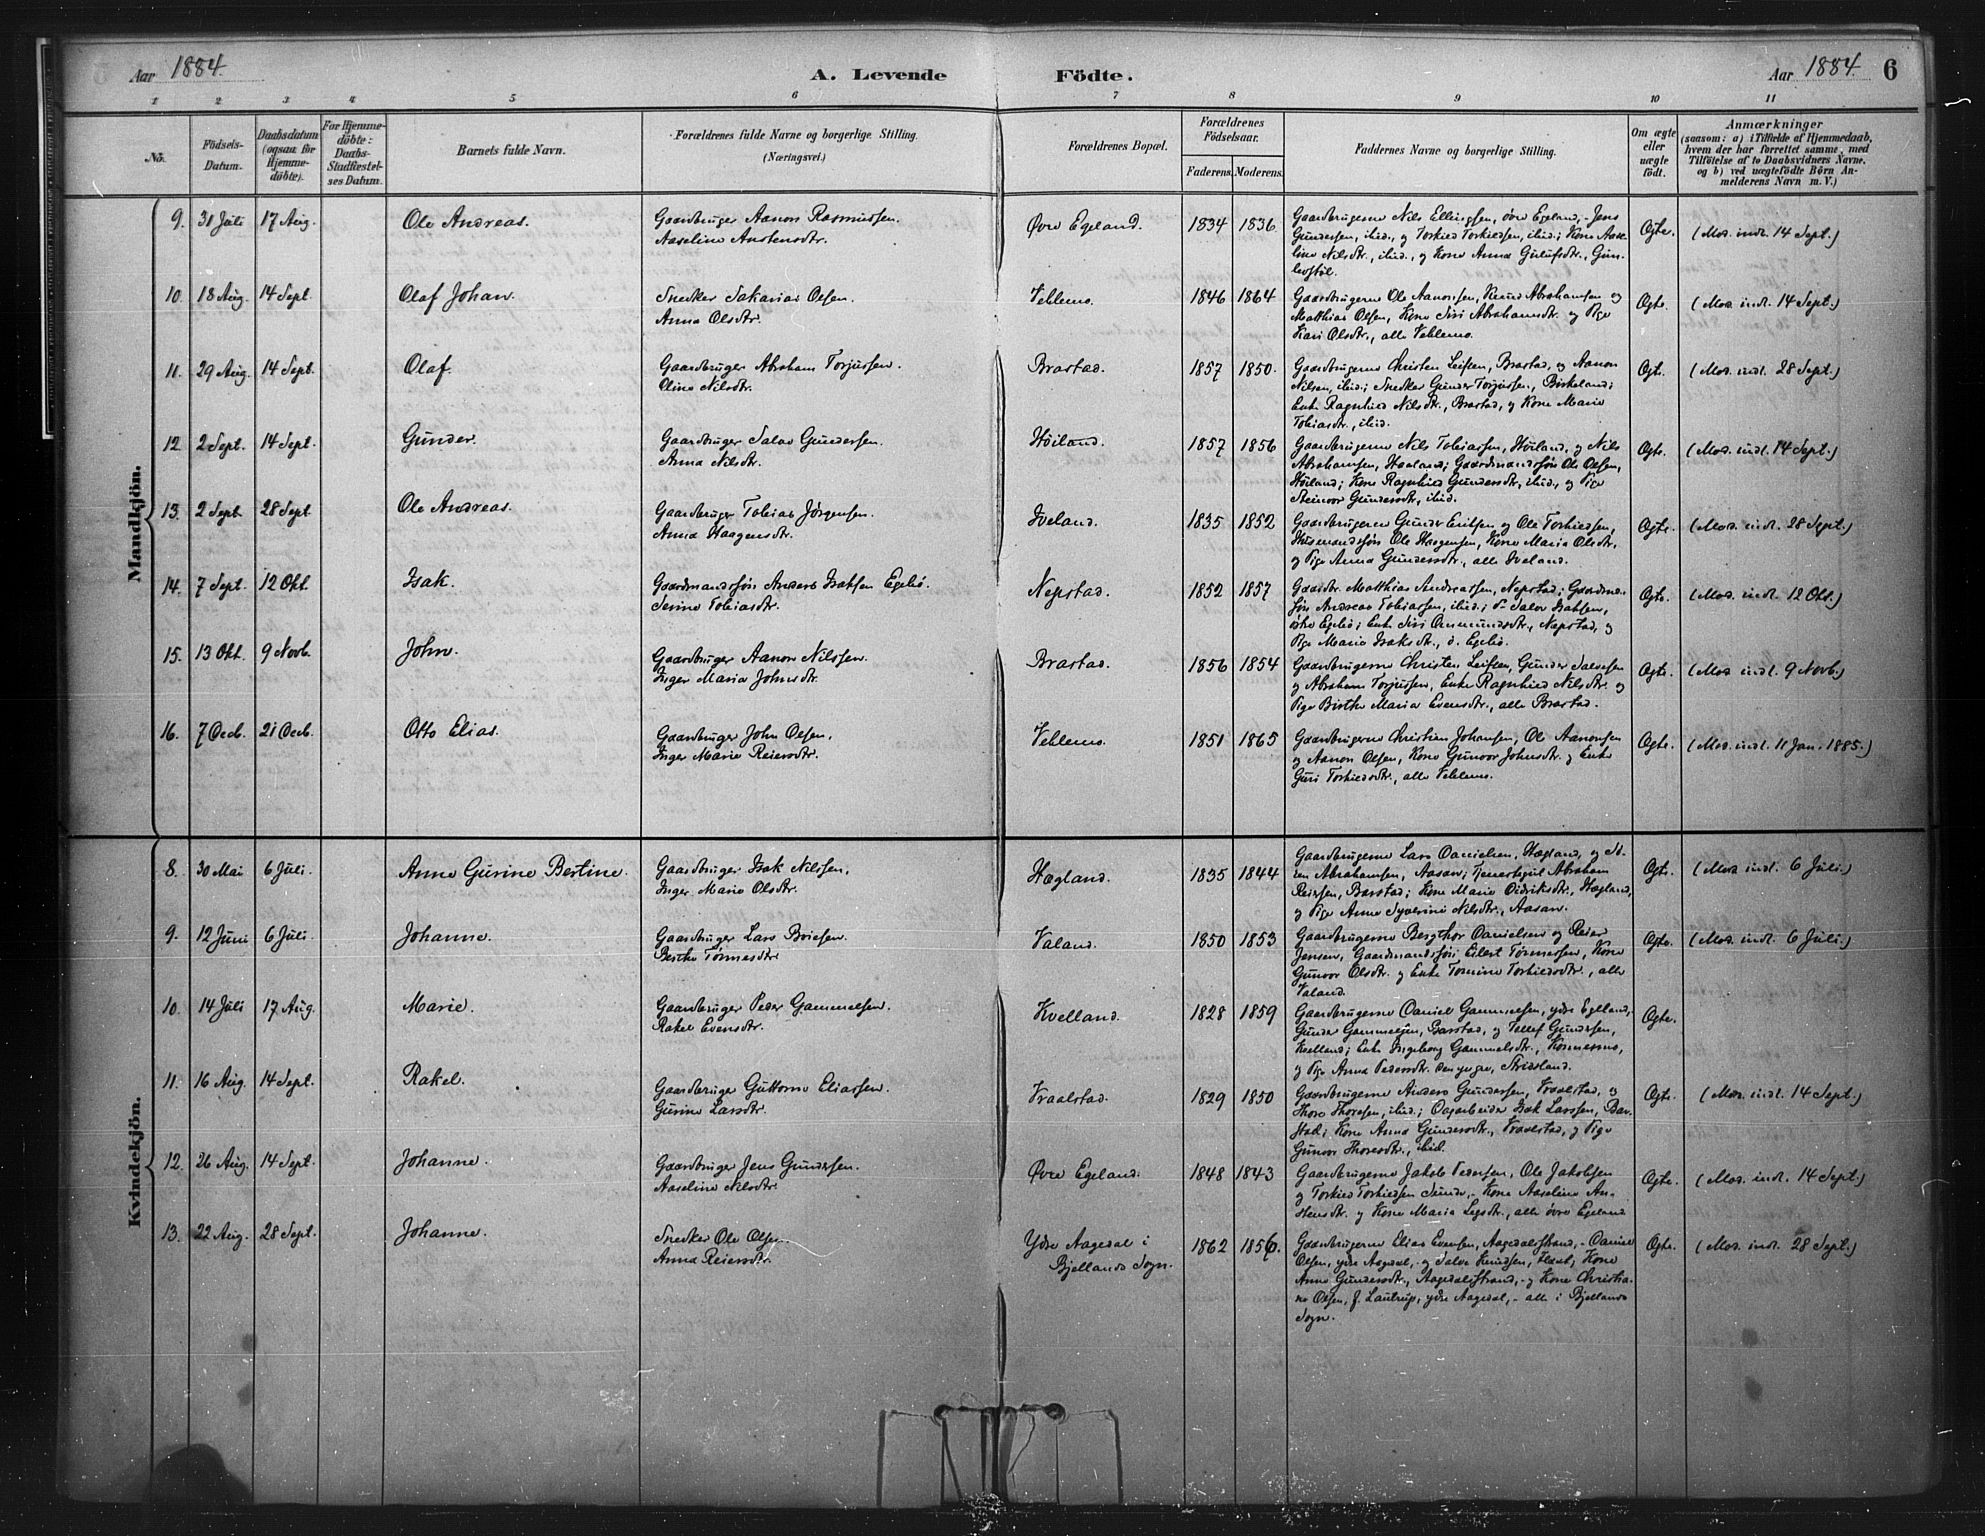 Aar 1884. A. Levende Födte. Aar 1884. 6
1 2 3 4 5 6 7 8 9 10 11
No. Födsels-Datum. Daabsdatum (ogsaa for Hjemmedöbte). For Hjemmedöbte: Daabs-Stadfestelses Datum. Barnets fulde Navn. Forældrenes fulde Navne og borgerlige Stilling. (Næringsvei.) Forældrenes Bopæl. Forældrenes Födselsaar. Faderens. Moderens. Faddernes Navne og borgerlige Stilling. Om ægte eller uægte födt. Anmærkninger (saasom: a) i Tilfælde af Hjemmedaab, hvem der har forrettet samme, med Tilföielse af to Daabsvidners Navne, og b) ved uægtefödte Börn Anmelderens Navn m. V.)
Mandkjön.
9. 31 Juli 17 Aug. Ole Andreas. Gaardbruger Aanon Rasmussen. Øvre Egeland. 1834 1836 Gaardbrugerne Nils Ellingsen, øvre Egeland, - Jens Ægte. (Mod. indl. 14 Sept.)
Aaseline Austensdtr. Gundersen, ibid., og Torkild Torkildsen, ibid.; Kone Aase-
line Nilsdtr., ibid., og Kone Anna
10. 18 Aug. 14 Sept. Olaf Johan. Snedker Sakarias Olsen. Vehlemo. 1846 1864 Gaardbrugerne Ole Aanonsen, Knud Abrahamsen og Ægte. (Mod. indl. 14 Sept.)
Anna Olsdtr. Matthias Olsen, Kone Siri Abrahamsdtr. og Pige
Kari Olsdtr., alle Vehlemo.
11. 29 Aug. 14 Sept. Olaf. Gaardbruger Abraham Torjussen. Brastad. 1857 1850. Gaardbrugerne Christen Leifsen, Brastad, og Aanon Ægt. (Mod. indl. 28 Sept.)
Oline Nilsdtr. Nilsen, ibid.; Snedker Gunder Torjussen, Birkeland;
Enke Ragnhild Nilsdtr., Brastad, og Kone Marie
Tobiasdtr., ibid.
12. 2 Sept. 14 Sept. Gunder. Gaardbruger Salve Gundersen. Höiland. 1857 1856 Gaardbrugerne Nils Tobiassen, Höiland, og Nils Ægte. (Mod. indl. 14 Sept.)
Anna Nilsdtr. Abrahamsen, Haaland; Gaardmandssön Ole Olsen,
Höiland; Kone Ragnhild Gundersdtr., ibid., og Pige
Steinvor Gundersdtr., ibid.
13. 2 Sept. 28 Sept. Ole Andreas. Gaardbruger Tobias Jörgensen. Iveland. 1835 1852 Gaardbrugerne Gunder Eriksen og Ole Torkildsen, Ægte. (Mod. indl. 28 Sept.)
Anna Haagensdtr. Husmandssön Ole Haagensen, Kone Maria Olsdtr.
og Pige Anna Gundersdtr., alle Iveland.
14. 7 Sept. 12 Okt. Isak. Gaardmandssön Anders Isaksen Egelid. Nepstad. 1852 1857 Gaardbr. Matthias Andreassen, Nepstad; Gaardmds- Ægte. (Mod. indl. 12 Okt.)
Serine Tobiasdtr. sön Andreas Tobiassen, ibid.; Salve Isaksen,
Egelid; Enke Siri Ommundsdtr., Nepstad, og
Pige Maria Isaksdtr., ö. Egelid.
15. 13 Okt. 9 Novb. John. Gaardbruger Aanon Nilssen. Brastad. 1856 1854 Gaardbrugerne Christen Leifsen, Gunder Salvesen Ægte. (Mod. indl. 9 Novb.)
Inger Maria Johnsdtr. og Abraham Torjussen, Enke Ragnhild Nilsdtr. og
Pige Birthe Maria Evensdtr., alle Brastad.
16. 7 Decb. 21 Decb. Otto Elias. Gaardbruger John Olsen, Vehlemo. 1851 1865 Gaardbrugerne Christian Johansen, Ole Aanonsen Ægte. (Mod. indl. 11 Jan. 1885.)
Inger Marie Reiersdtr. og Aanon Olsen, Kone Gunvor Johnsdtr. og Enke
Guri Torkildsdtr., alle Vehlemo.
Kvindekjön.
8. 30 Mai 6 Juli. Anne Gurine Bertine. Gaardbruger Isak Nilssen, Hægland. 1835 1844 Gaardbrugerne Lars Danielsen, Hægland, og Ægte. (Mod. indl. 6 Juli.)
Inger Marie Olsdtr. Abrahamsen, Aasan; Abraham
Reiersen, Barstad; Kone Maria Didriksdtr., Hægland,
og Pige Anne Syverine Nilsdtr., Aasan.
9. 12 Juni 6 Juli. Johanne. Gaardbruger Lars Boiesen. Valand. 1850 1853 Gaardbrugerne Bergthor Danielsen og Reier Ægte. (Mod. indl. 6 Juli.)
Berthe Tönnesdtr. Jensen, Gaardmandssön Eilert Tönnessen, Kone
Gunvor Olsdtr. og Enke Tomine Torkildsdtr., alle
Valand.
10. 14 Juli 17 Aug. Marie. Gaardbruger Peder Gammelsen. Kvelland. 1828 1859 Gaardbrugerne Daniel Gammelsen, ydre Egeland; Ægte.
Rakel Evensdtr. Gunder Gammelsen, Barstad, og Tellef Gundersen,
Kvelland; Enke Ingeborg Gammelsdtr.,
og Pige Anna Pedersdtr. den yngre, Fridsland.
11. 16 Aug. 14 Sept. Rakel. Gaardbruger Guttorm Eliassen. Vraalstad. 1829 1850 Gaardbrugerne Anders Gundersen, Vraalstad, og Ægte. (Mod. indl. 14 Sept.)
Gurine Larsdtr. Thore Thoresen, ibid.; Dagarbeider Isak Larssen, Bar-
stad; Kone Anna Gundersdtr., Vraalstad, og Pige
Gunvor Thoresdtr., ibid.
12. 26 Aug. 14 Sept. Johanne. Gaardbruger Jens Gundersen. Øvre Egeland. 1848 1843 Gaardbrugerne Jakob Pedersen, Ole Jakobsen Ægte. (Mod. indl. 14 Sept.)
Aaseline Nilsdtr. og Torkild Torkildsen Sunde, - Kone Aaseline Au-
stensdtr. og Kone Maria alle övre Egeland
13. 22 Aug. 28 Sept. Johanne. Snedker Ole Olsen. Ydre Aagedal i 1862 1856. Gaardbrugerne Elias Evensen, Aagedalsstrand, - Daniel Ægte. (Mod. indl. 28 Sept.)
Anna Reiersdtr. Bjellands Sogn. Olsen, ydre Aagedal, - og Salve Knudsen, Kone
Anne Gundersdtr., Aagedalsstrand, - og Kone Christia-
ne Olsen, f. Lautrup, ydre Aagedal, - alle i Bjellands
Sogn.